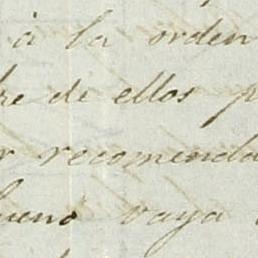 á la orden
re de ellos p
r recomenda
bueno vaya